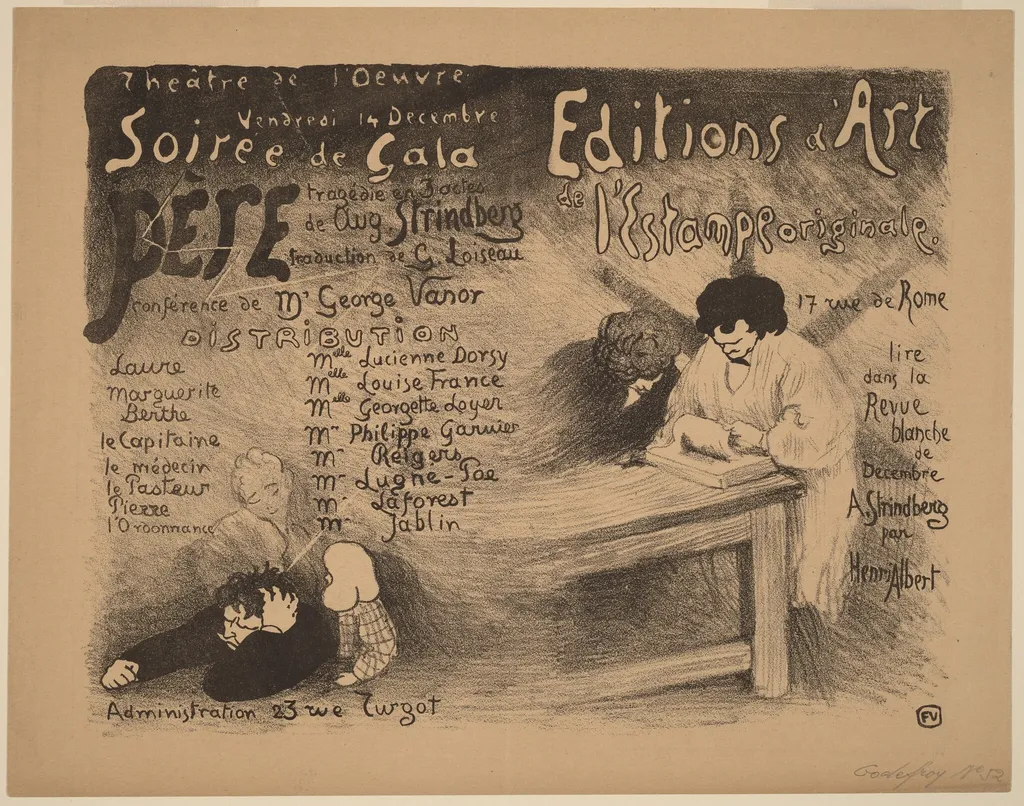 Theâtre de l'Oeuvre
Vendredi 14 Decembre
Soirée de Gala
PÈRE
tragédie en 3 actes
de Aug. Strindberg
traduction de G. Loiseau
conférence de Mr George Vanor
DISTRIBUTION
Laure Melle Lucienne Dorsy
Marguerite Melle Louise France
Berthe Melle Georgette Loyer
le Capitaine Mr Philippe Garnier
le médecin Mr Relgers
le Pasteur Mr Lugné-Poe
Pierre Mr Laforest
l'Ordonnance Mr Jablin
Administration 23 rue Turgot
Editions d'Art
de l'Estampe originale.
17 rue de Rome
lire
dans la
Revue
blanche
de
Decembre
A. Strindberg
par
Henri Albert
FV
Godefroy No 52